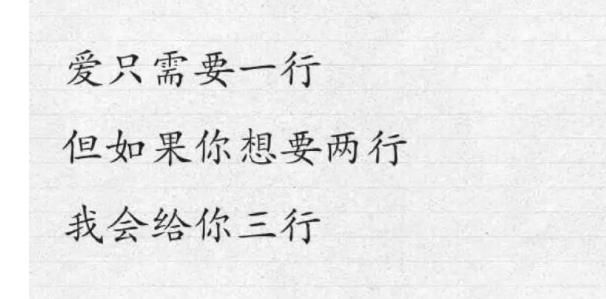 爱只需要一行
但如果你想要两行
我会给你三行